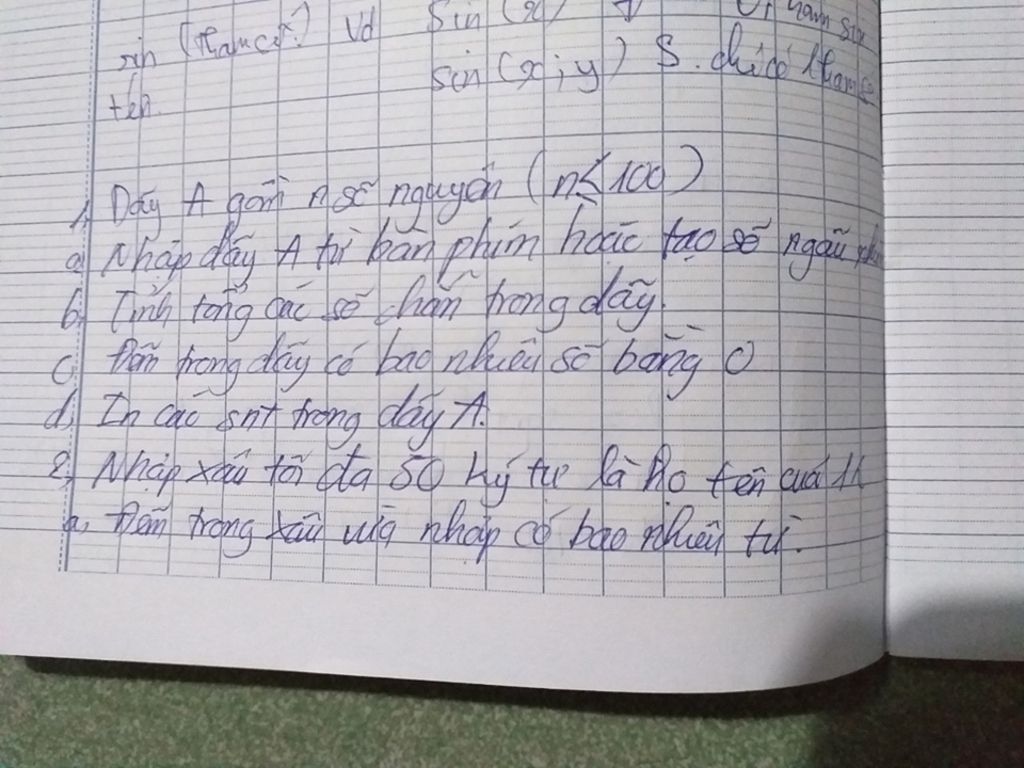 sin (tham số) Vd sin (x) Đ. hàm sin
sin (x; y) S. chỉ có tham số
tên.
1, Dãy A gồm n số nguyên (n ≤ 100)
a, Nhập dãy A từ bàn phím hoặc tạo số ngẫu nhiên
b, Tính tổng các số chẵn trong dãy.
c, Đếm trong dãy có bao nhiêu số bằng 0
d, In các snt trong dãy A.
2, Nhập xâu tối đa 50 ký tự là họ tên của 1
a, Đếm trong xâu vừa nhập có bao nhiêu từ.